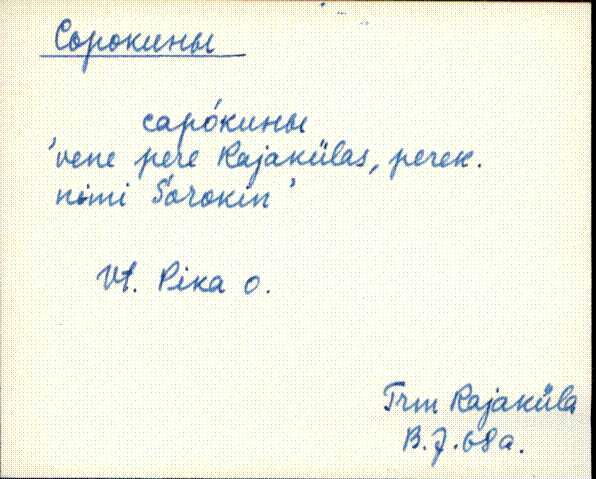 Сорокины
сарóкины
'vene pere Rajakülas, perek.
nimi Sorokin'
Vt. Pika o.
Trm Rajaküla
B.J.68a.